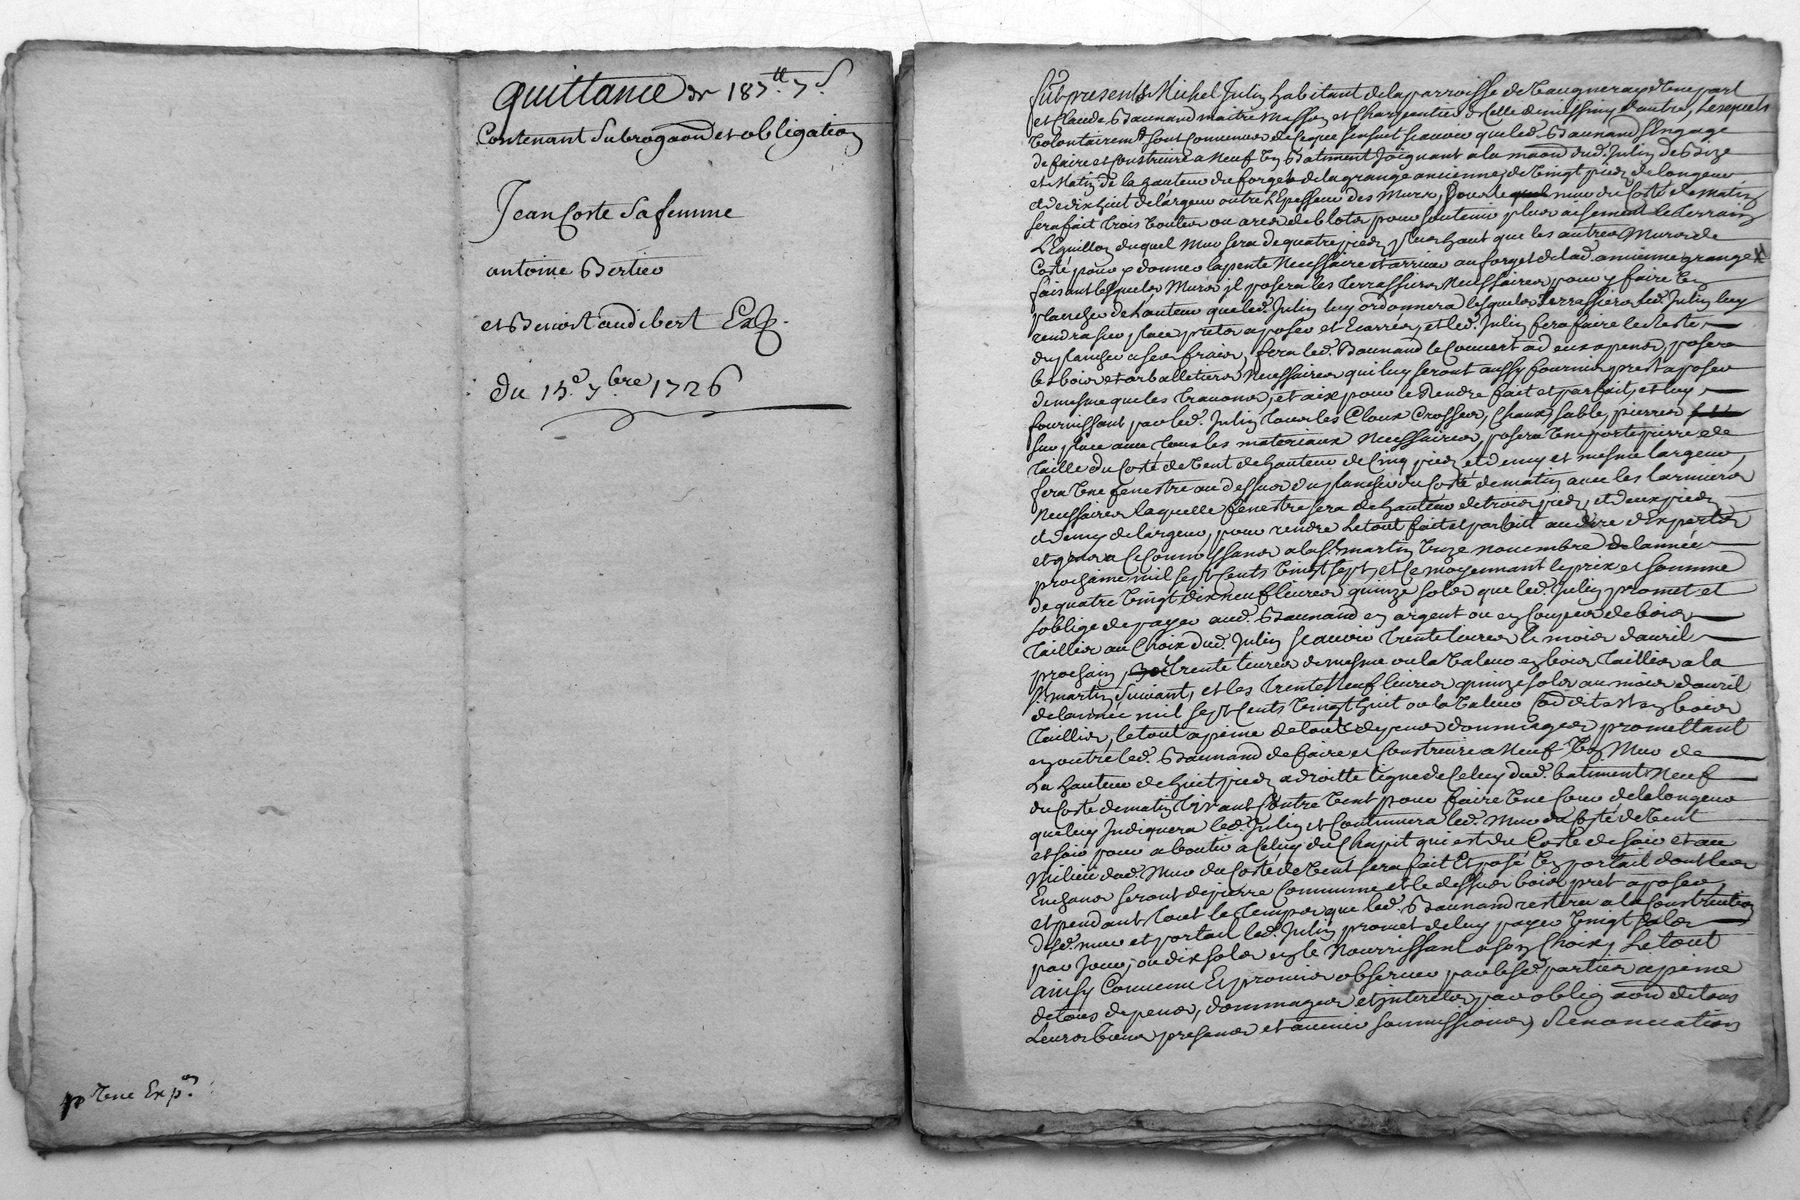 quittance de 187.tt 7.s
Contenant Subrogaon et obligation
Jean Coste Sa femme
antoine Bertier
et Benoist audibert Exp.
Du 15.e 7.bre 1726
po Une Exp.on
furt presents Michel Julin habitant de la parroisse de Vaugneray d'Une part
et Claude Baunand maitre Masson et Charpentier de Celle de messimy d'autre, Lesquels
Volontairemt. sont Convenus de Ce que sensuit scauoir que led. Baunand s'Engage
de faire et Construire a Neuf Un Batiment Joignant a la maon dud. Julin de Bize
et Matin de la hauteur du forget de la grange ancienne, de Vingt pieds de longeur
et de dix huit de largeur outre L'Epesseur des Murs, pour le mur du Costé de Matin
sera fait trois Voutes ou arcs de blots pour soutenir plus aisement le terrain
L'Eguillon duquel Mur sera de quatre pieds plus haut que les autres Murs de
Costé pour donner la pente Necessaire et arriuer au forget de lad. ancienne grange
faisant lesquels Murs il posera les terrassiers Necessaires pour y faire Un
plancher de hauteur que led. Julin luy ordonnera lesquels terrassiers led. Julin luy
rendra sur place prets a poser et Ecarrés, et led. Julin fera faire le Reste
du plancher a ses fraix, fera led. Baunand le Couuert a deux apens, posera
les bois et arballetiers Necessaires qui luy seront aussy fournis prest a poser
de mesme que les trauons, et aix pour le Rendre fait et parfait, et luy
fournissant par led. Julin tous les Cloux Crosses, Chaux, sable, pierres
sur place auec tous les materiaux Necessaires, posera Une porte pierre de
taille du Costé de Vent de hauteur de Cinq pieds et demy et mesme largeur,
fera Une fenestre au dessus du plancher du Costé de matin auec les larmiers
Necessaires laquelle fenestre sera de hauteur de trois pieds, et deux pieds
et demy de largeur, pour rendre Le tout fait et parfait au dire d'Experts
et gens a Ce Connoissans a la St. martin Unze nouembre de lannée
prochaine mil sept Cents Vingt sept, et Ce moyennant le prix et somme
de quatre Vingt dix neuf liures quinze sols que led. Julin promet et
s'oblige de payer aud. Baunand en argent ou en Coupes de bois
taillis au Choix dud. Julin scauoir trente liures le mois d'auril
prochain, trente liures de mesme ou la Valeur en bois taillis a la
St. martin Suiuant, et les trente neuf liures quinze sols au mois d'auril
de lannée mil sept Cents Vingt huit ou la Valeur Cod dit est en bois
taillis, le tout a peine de tous depens dommages promettant
en outre led. Baunand de faire et Construire a Neuf Un Mur de
La hauteur de huit pieds a droitte ligne de Celuy dud. batiment Neuf
du Costé de matin tirant Contre Vent pour faire Une Cour de la longeur
que luy Indiquera led. Julin et Continuera led. Mur du Costé de Vent
et soir pour aboutir a Celuy du Chapit qui est du Costé de soir et au
Milieu dud. Mur du Costé de Vent sera fait Et posé Un portail dont les
Enchans seront de pierre Commune et le dessus bois pret a poser,
et pendant tout le temps que led. Baunand restera a la Construction
dud. mur et portail led. Julin promet de luy payer Vingt sols
par Jour, ou dix sols en le Nourrissant a son Choix, Le tout
ainsy Conuenu Et promis obseruer par lesd. parties a peine
de tous depens, dommages et interets, par obligaon de tous
Leurs biens presens et auenir soumissions, Renonciation